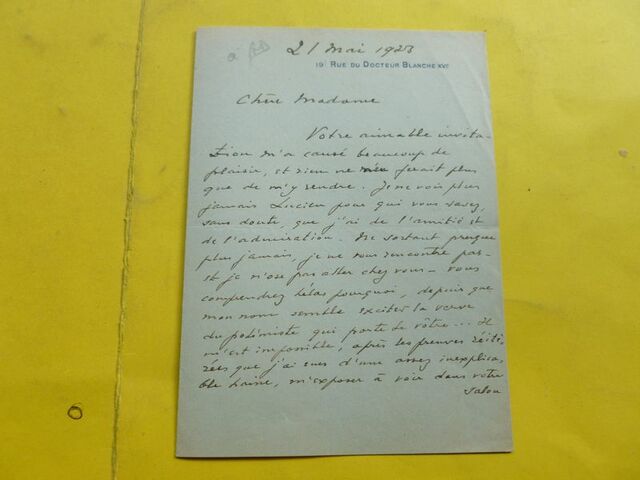 21 Mai 1923
19 RUE DU DOCTEUR BLANCHE XVIe
Chère Madame
Votre aimable invita-
tion m'a causé beaucoup de
plaisir, et rien ne ferait plus
que de m'y rendre. Je ne vois plus
jamais Lucien pour qui vous savez,
sans doute, que j'ai de l'amitié et
de l'admiration. Ne sortant presque
plus jamais, je ne vous rencontre pas-
et je n'ose pas aller chez vous - vous
comprendrez hélas pourquoi, depuis que
mon nom semble exciter la verve
du polémiste qui porte le vôtre... Il
m'est impossible, après les preuves réité-
rées que j'ai eues d'une assez inexplica-
ble haine, m'exposer à voir dans votre
salon